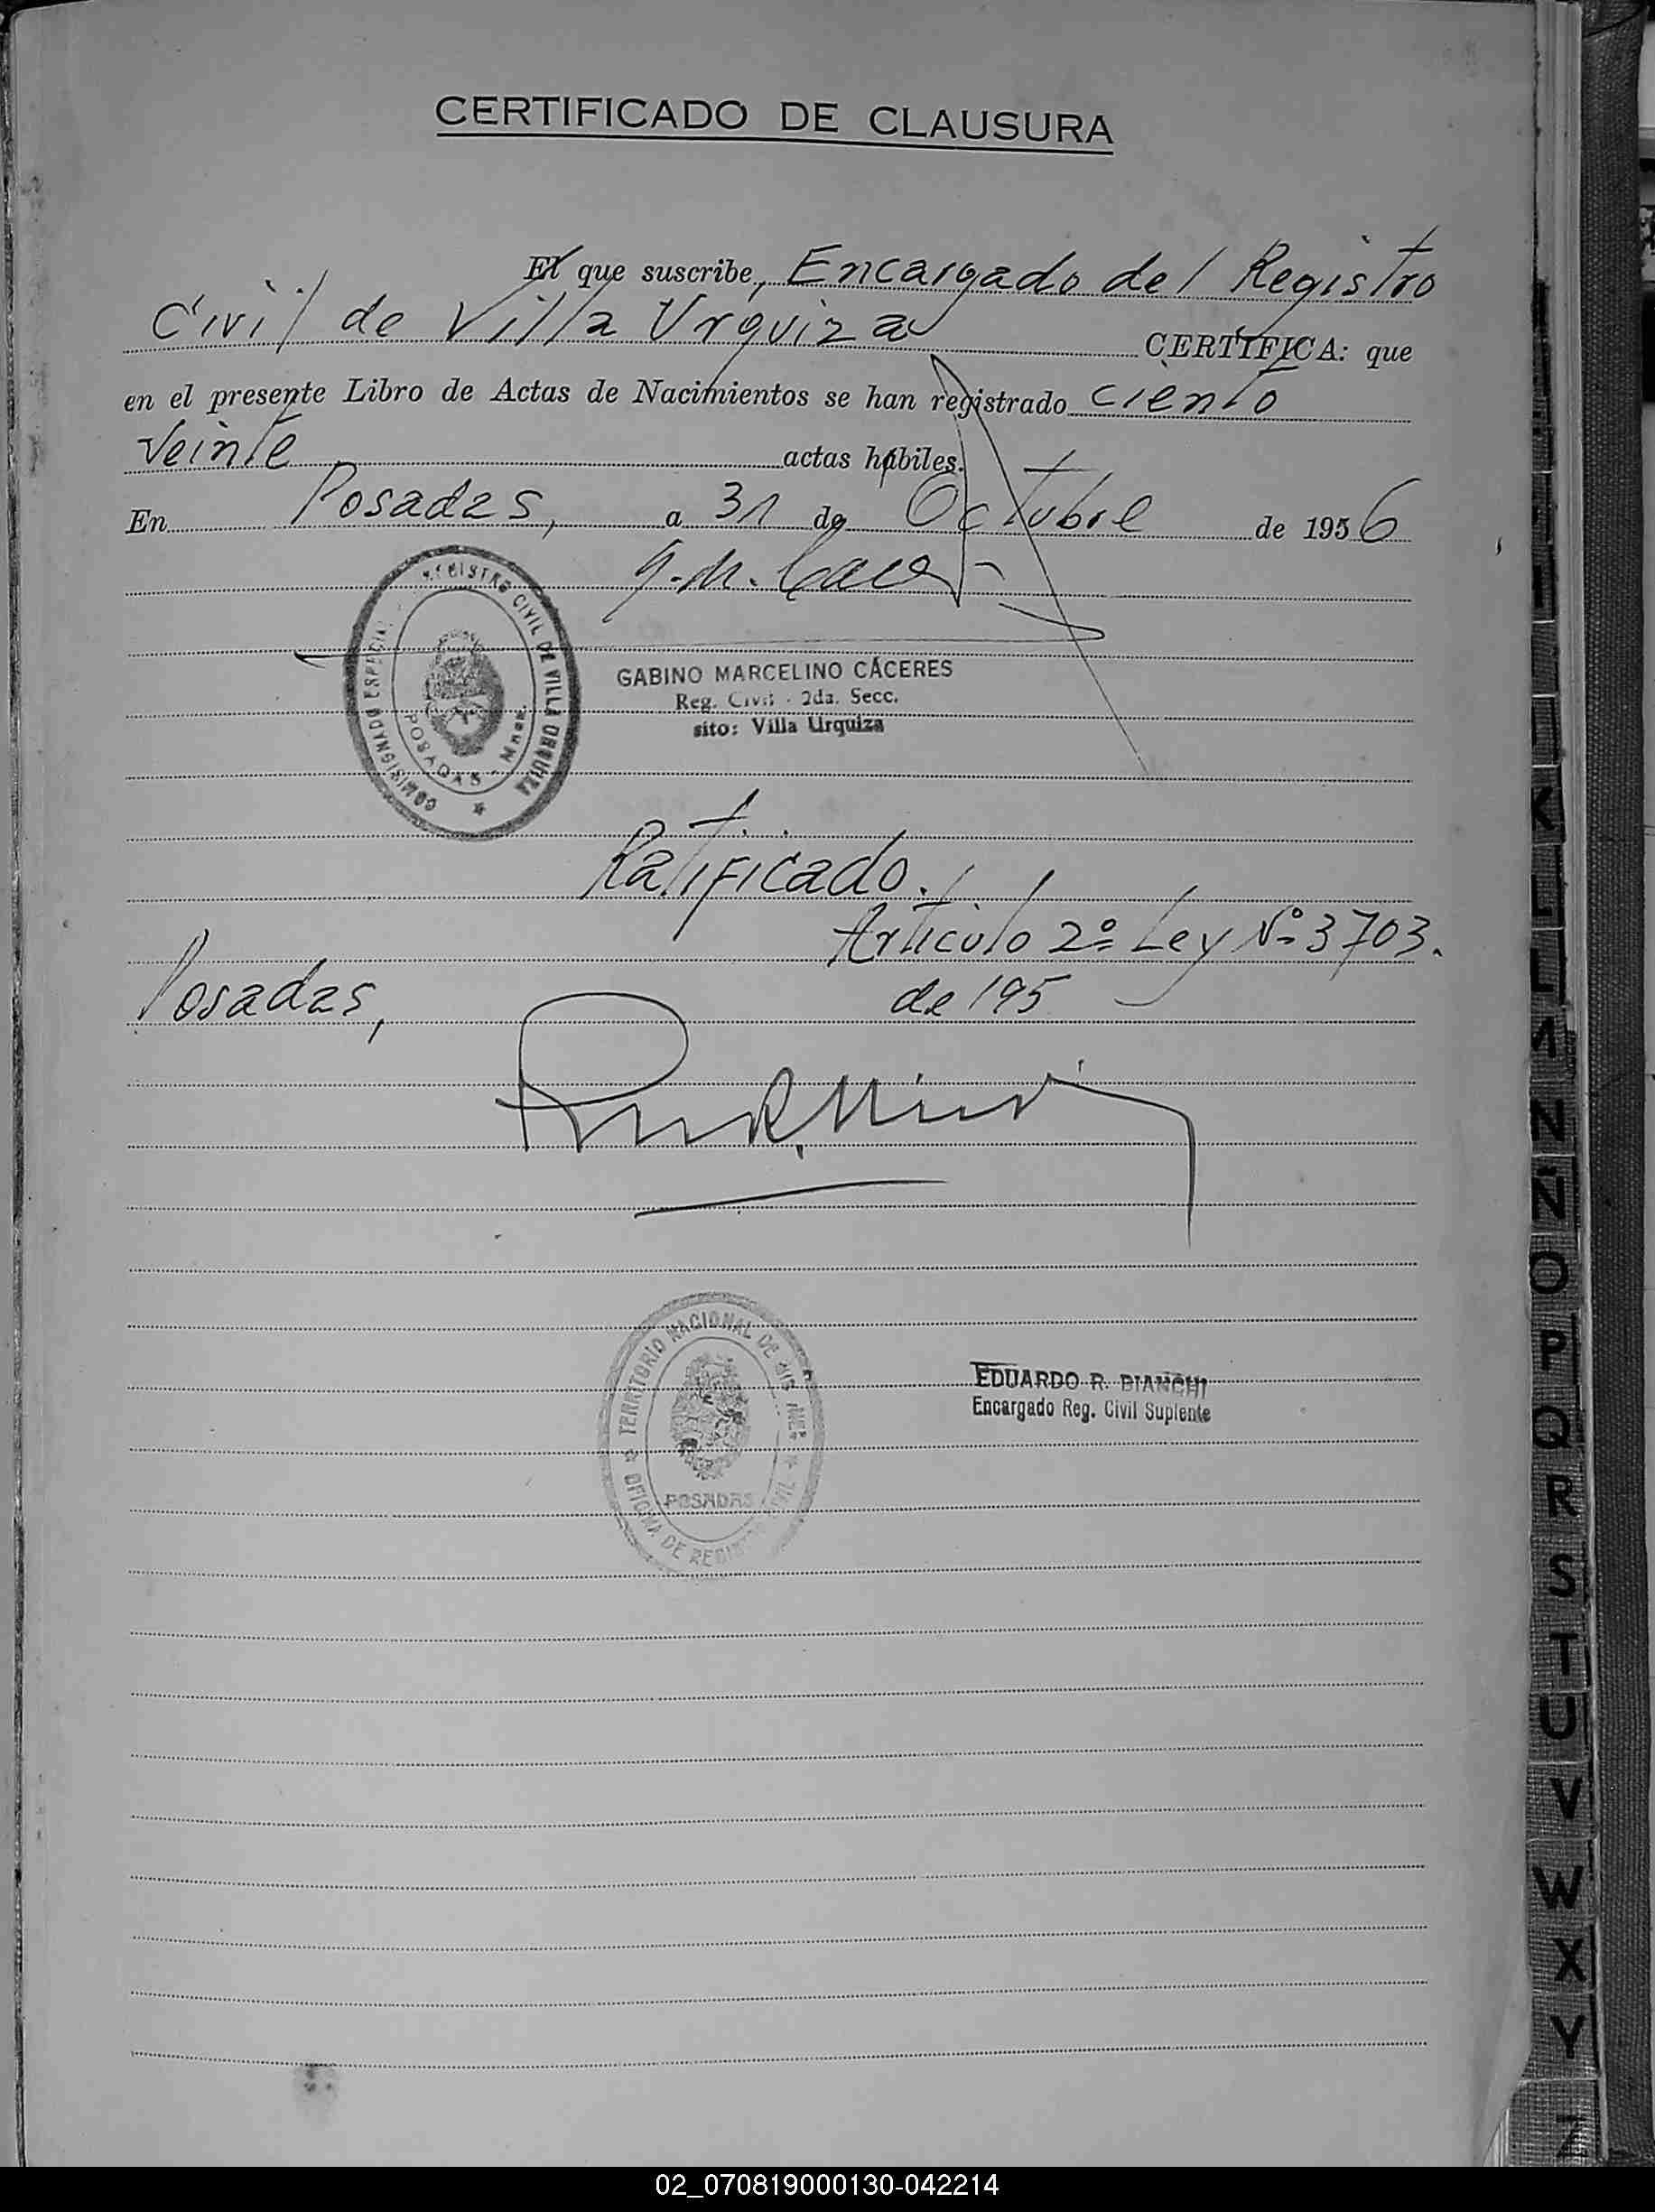 CERTIFICADO DE CLAUSURA
El que suscribe, Encargado del Registro
Civil de Villa Urquiza CERTIFICA: que
en el presente Libro de Actas de Nacimientos se han registrado ciento
veinte actas hábiles.
En Posadas, a 31 de Octubre de 1956
REGISTRO CIVIL DE VILLA URQUIZA
COMISIONADO ESPECIAL
POSADAS - Mnes.
GABINO MARCELINO CÁCERES
Reg. Civil - 2da. Secc.
sito: Villa Urquiza
Ratificado.
Artículo 2º Ley Nº 3703.
Posadas, de 195
TERRITORIO NACIONAL DE MISIONES
OFICINA DE REGISTRO CIVIL
POSADAS
EDUARDO R. BIANCHI
Encargado Reg. Civil Suplente
K
L
LL
M
N
Ñ
O
P
Q
R
S
T
U
V
W
X
Y
Z
02_070819000130-042214